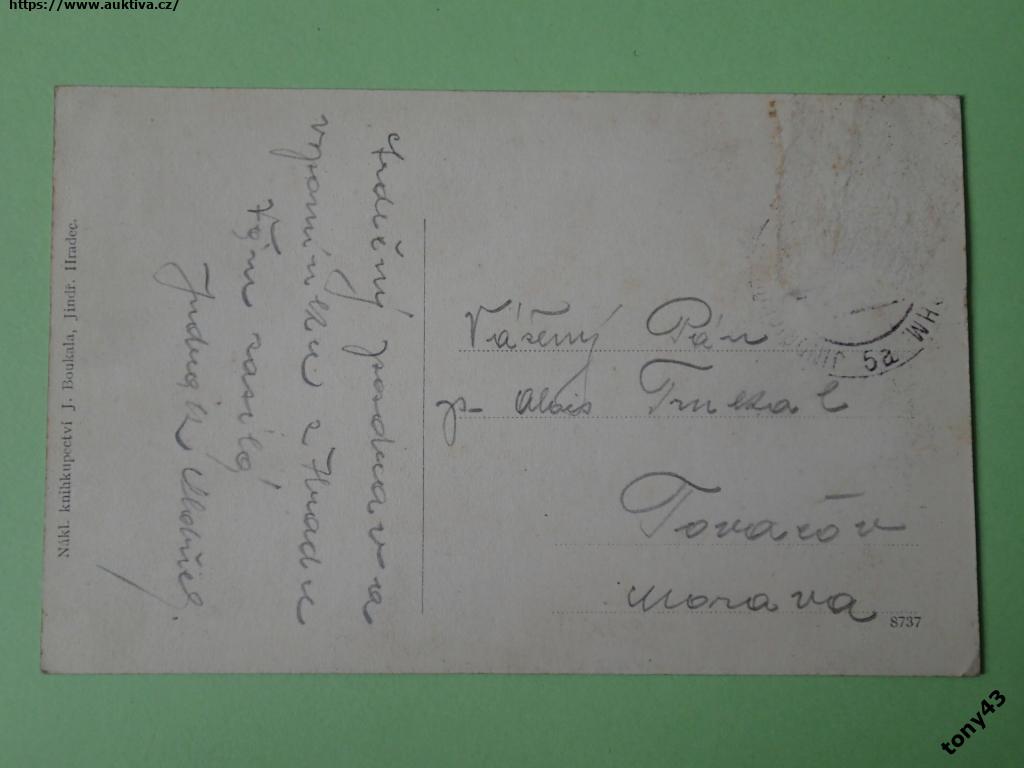 https://www.auktiva.cz/
Nákl. knihkupectví J. Boukala, Jindř. Hradec.
Srdečný pozdrav a
vzpomínku z Hradce
Vám zasílá
Jindra
Vážený Pán
p. Alois
Tovačov
Morava
8737
tony43